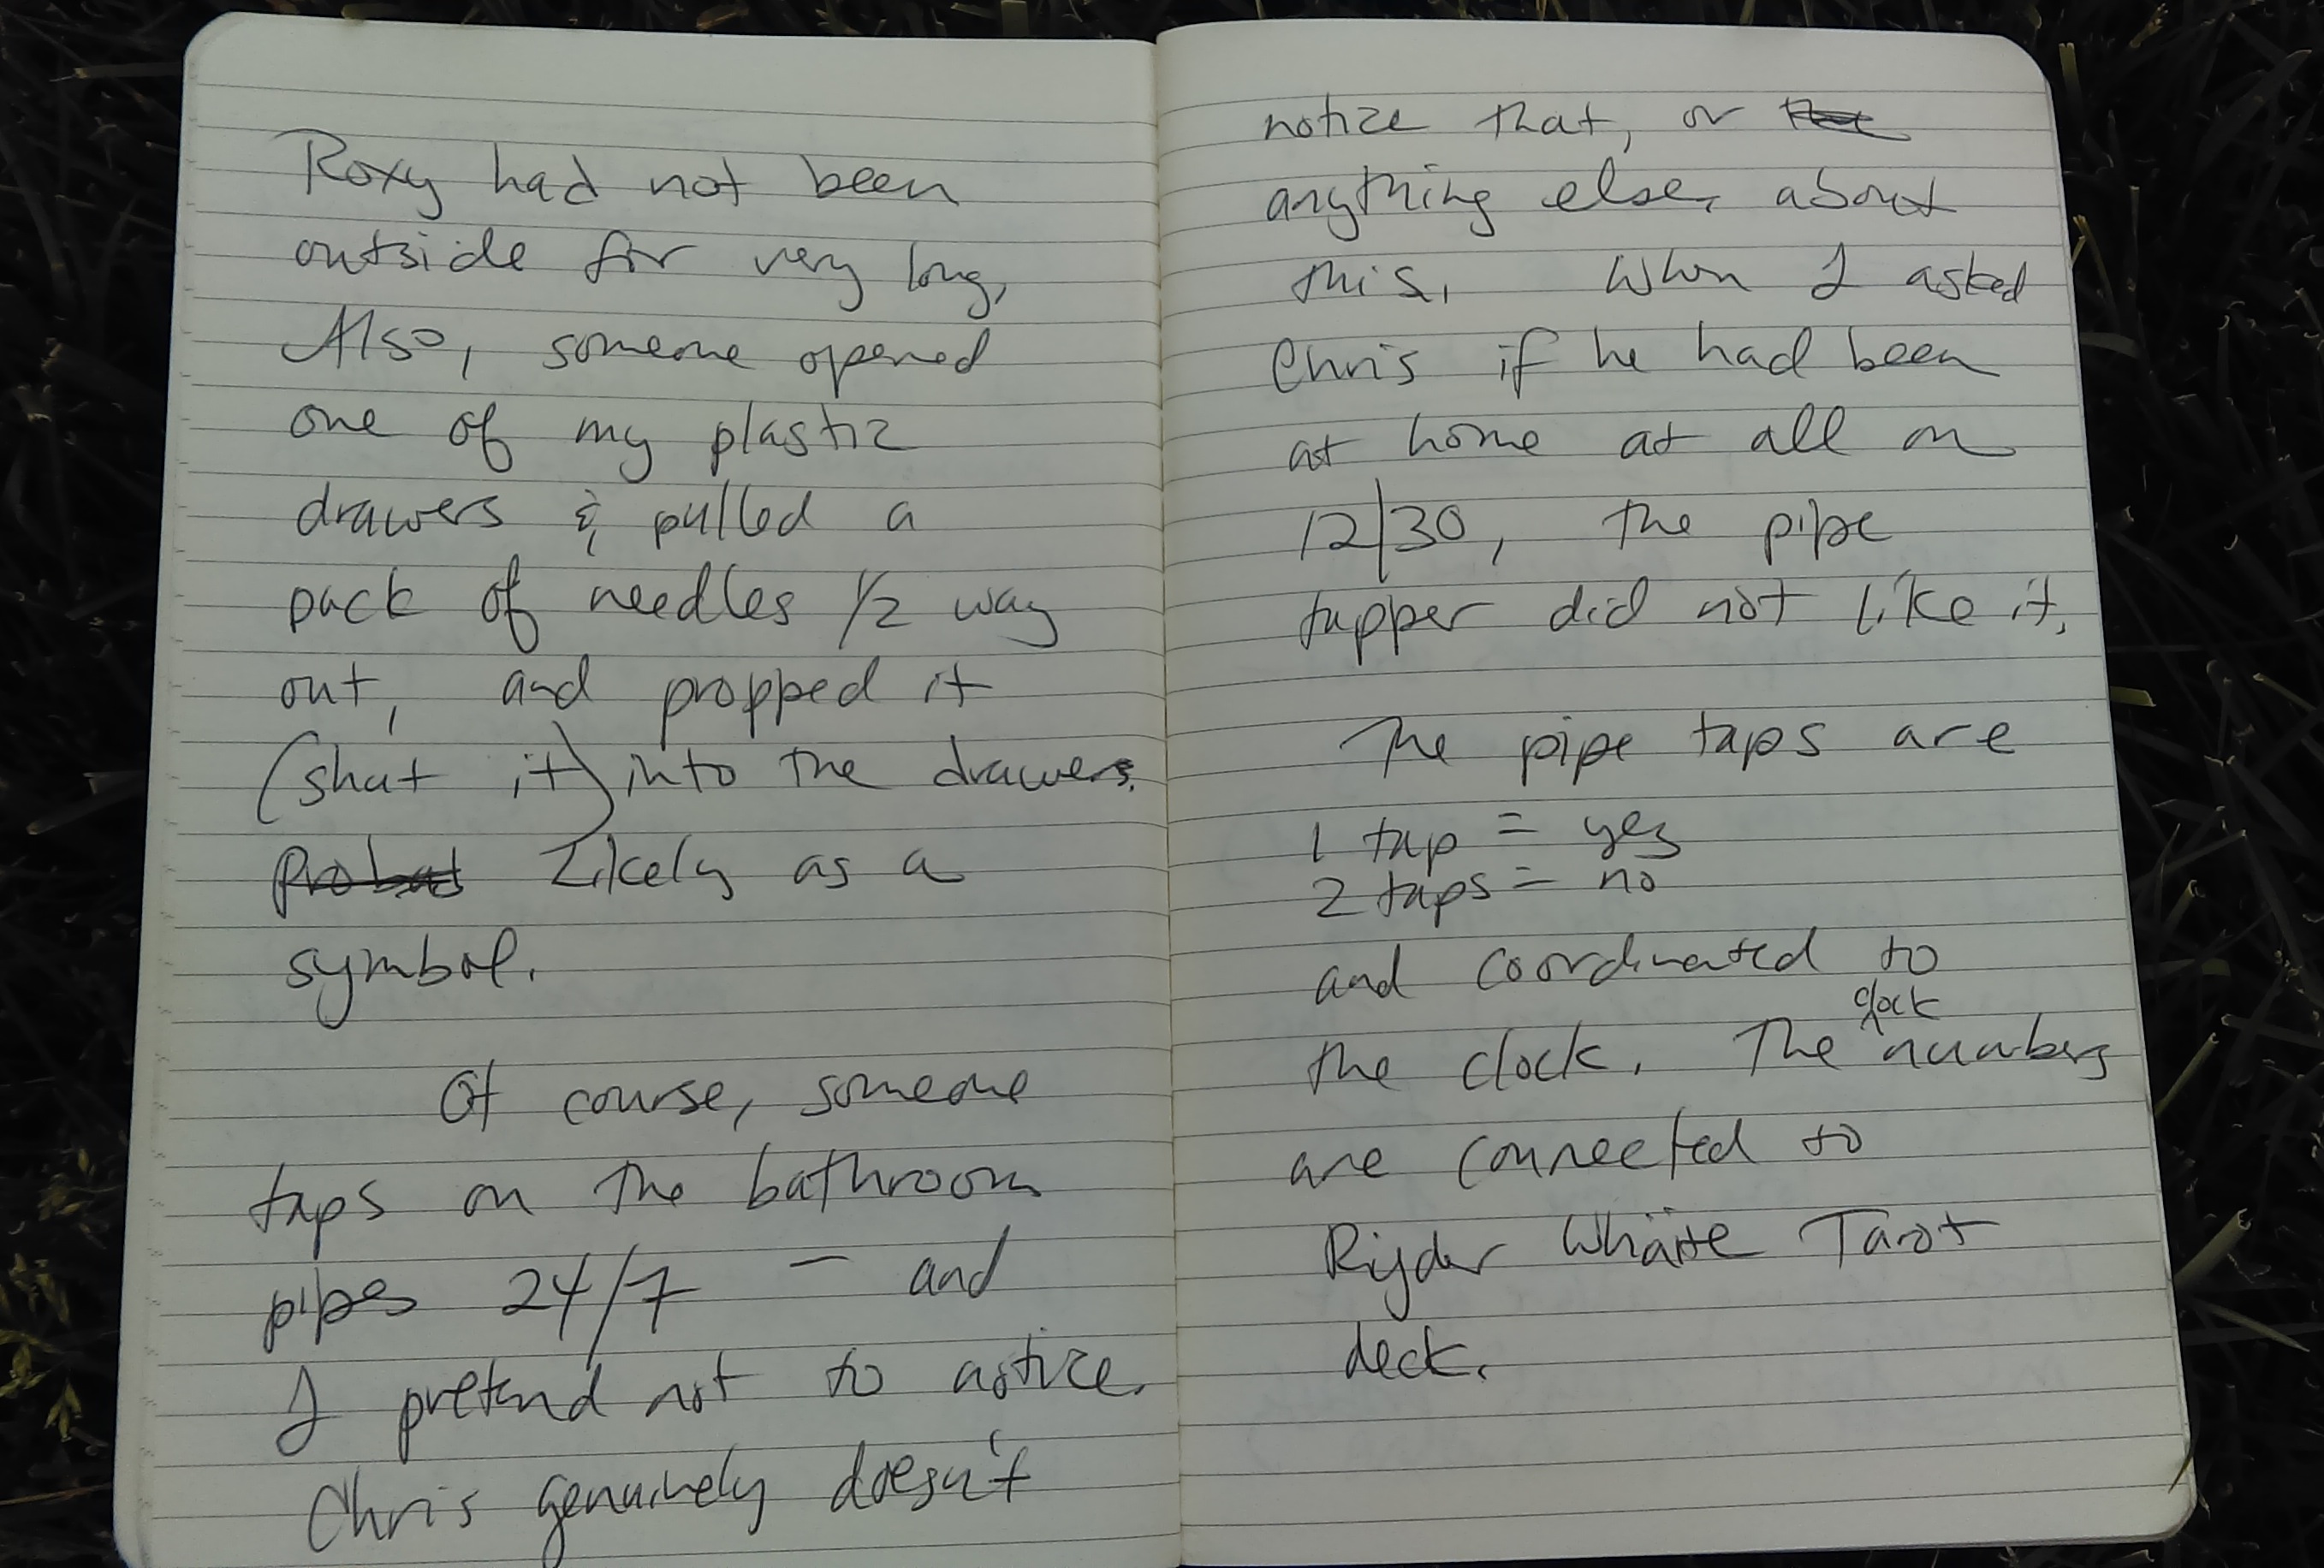 Roxy had not been
outside for very long,
Also, someone opened
one of my plastic
drawers & pulled a
pack of needles 1/2 way
out, and propped it
(shut it) into the drawers.
Likely as a
symbol.
Of course, someone
taps on the bathroom
pipes 24/7 – and
I pretend not to notice.
Chris genuinely doesn't
notice that, or the
anything else, about
this. When I asked
Chris if he had been
at home at all on
12/30, the pipe
tapper did not like it.
The pipe taps are
1 tap = yes
2 taps = no
and coordinated to
the clock. The clock numbers
are connected to
Ryder Whaite Tarot
deck.